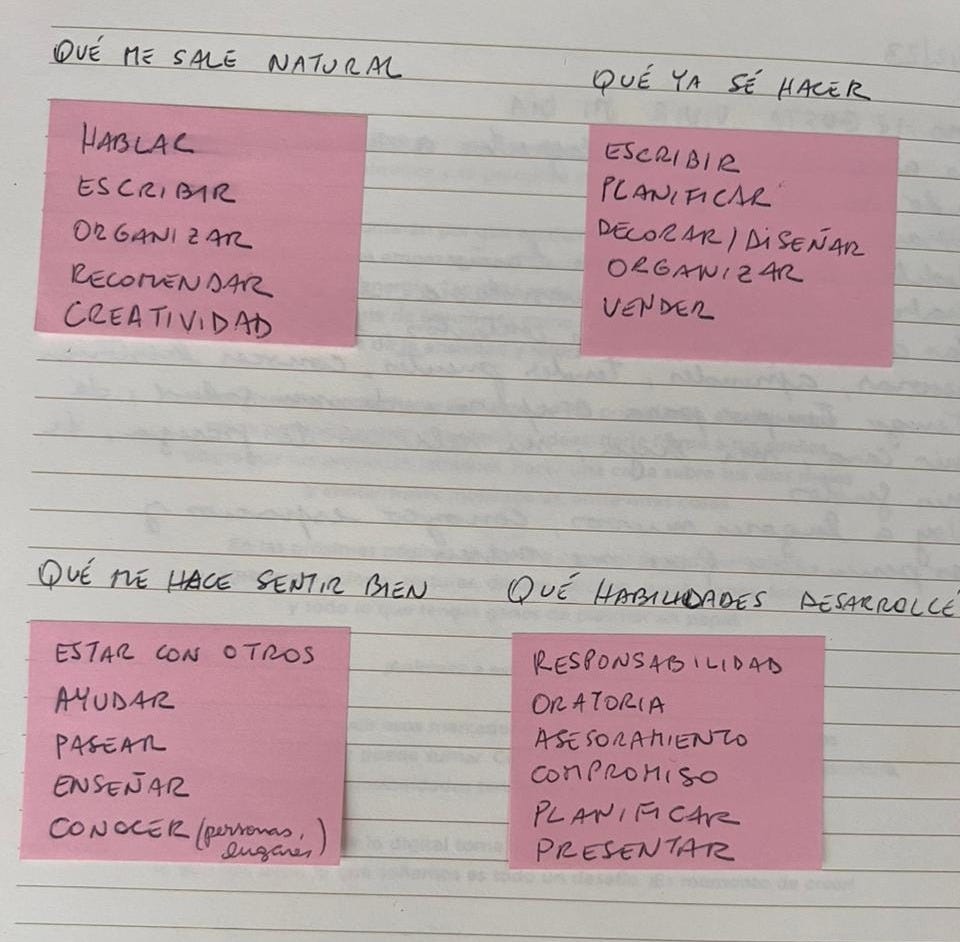 QUÉ ME SALE NATURAL
HABLAR
ESCRIBIR
ORGANIZAR
RECOMENDAR
CREATIVIDAD
QUÉ YA SÉ HACER
ESCRIBIR
PLANIFICAR
DECORAR/DISEÑAR
ORGANIZAR
VENDER
QUÉ ME HACE SENTIR BIEN
ESTAR CON OTROS
AYUDAR
PASEAR
ENSEÑAR
CONOCER (personas,
lugares)
QUÉ HABILIDADES DESARROLLÉ
RESPONSABILIDAD
ORATORIA
ASESORAMIENTO
COMPROMISO
PLANIFICAR
PRESENTAR